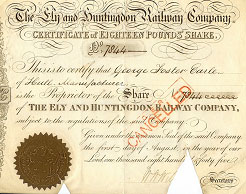 The Ely and Huntingdon Railway Company
CERTIFICATE OF EIGHTEEN POUNDS' SHARE.
No. 7844
This is to certify that George Foster Earle
of Manufacturer
is the Proprietor of the Share
THE ELY AND HUNTINGDON RAILWAY COMPANY,
subject to the regulations of the said Company.
Given under the Common Seal of the said Company
the first day of August, in the year of our
Lord one thousand eight hundred and forty five
Secretary
CANCELLED